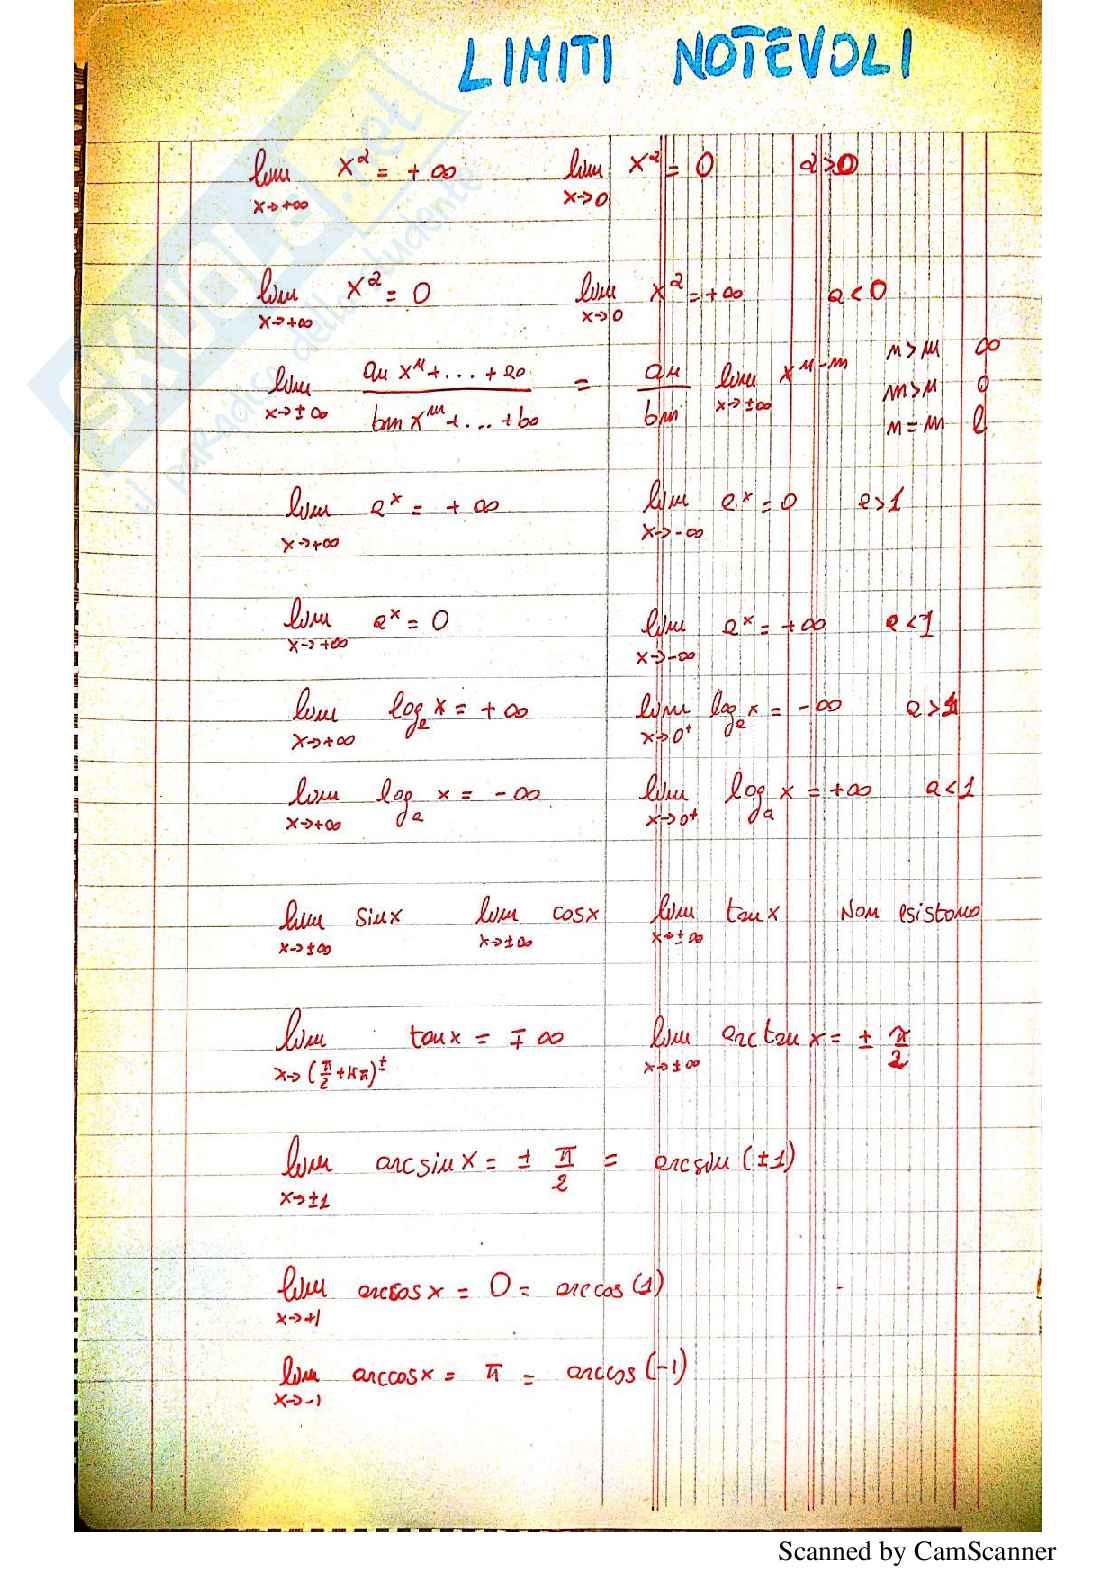 LIMITI NOTEVOLI
lim x→+∞ x^a = +∞ lim x→0 x^a = 0 a>0
lim x→+∞ x^a = 0 lim x→0 x^a = +∞ a<0
lim x→±∞ (an x^n + ... + a0)/(bm x^m + ... + b0) = an/bm lim x→±∞ x^n-m n>m ∞
m>n 0
n=m l
lim x→+∞ a^x = +∞ lim x→-∞ a^x = 0 a>1
lim x→+∞ a^x = 0 lim x→-∞ a^x = +∞ a<1
lim x→+∞ log_a x = +∞ lim x→0⁺ log_a x = -∞ a>1
lim x→+∞ log_a x = -∞ lim x→0⁺ log_a x = +∞ a<1
lim x→±∞ sinx lim x→±∞ cosx lim x→±∞ tanx Non esistono
lim x→(π/2+kπ)^± tanx = ∓∞ lim x→±∞ arctanx = ± π/2
lim x→±1 arcsinx = ± π/2 = arcsin(±1)
lim x→+1 arccosx = 0 = arccos(1)
lim x→-1 arccosx = π = arccos(-1)
SKUOLA.net
il paradiso dello studente
Scanned by CamScanner